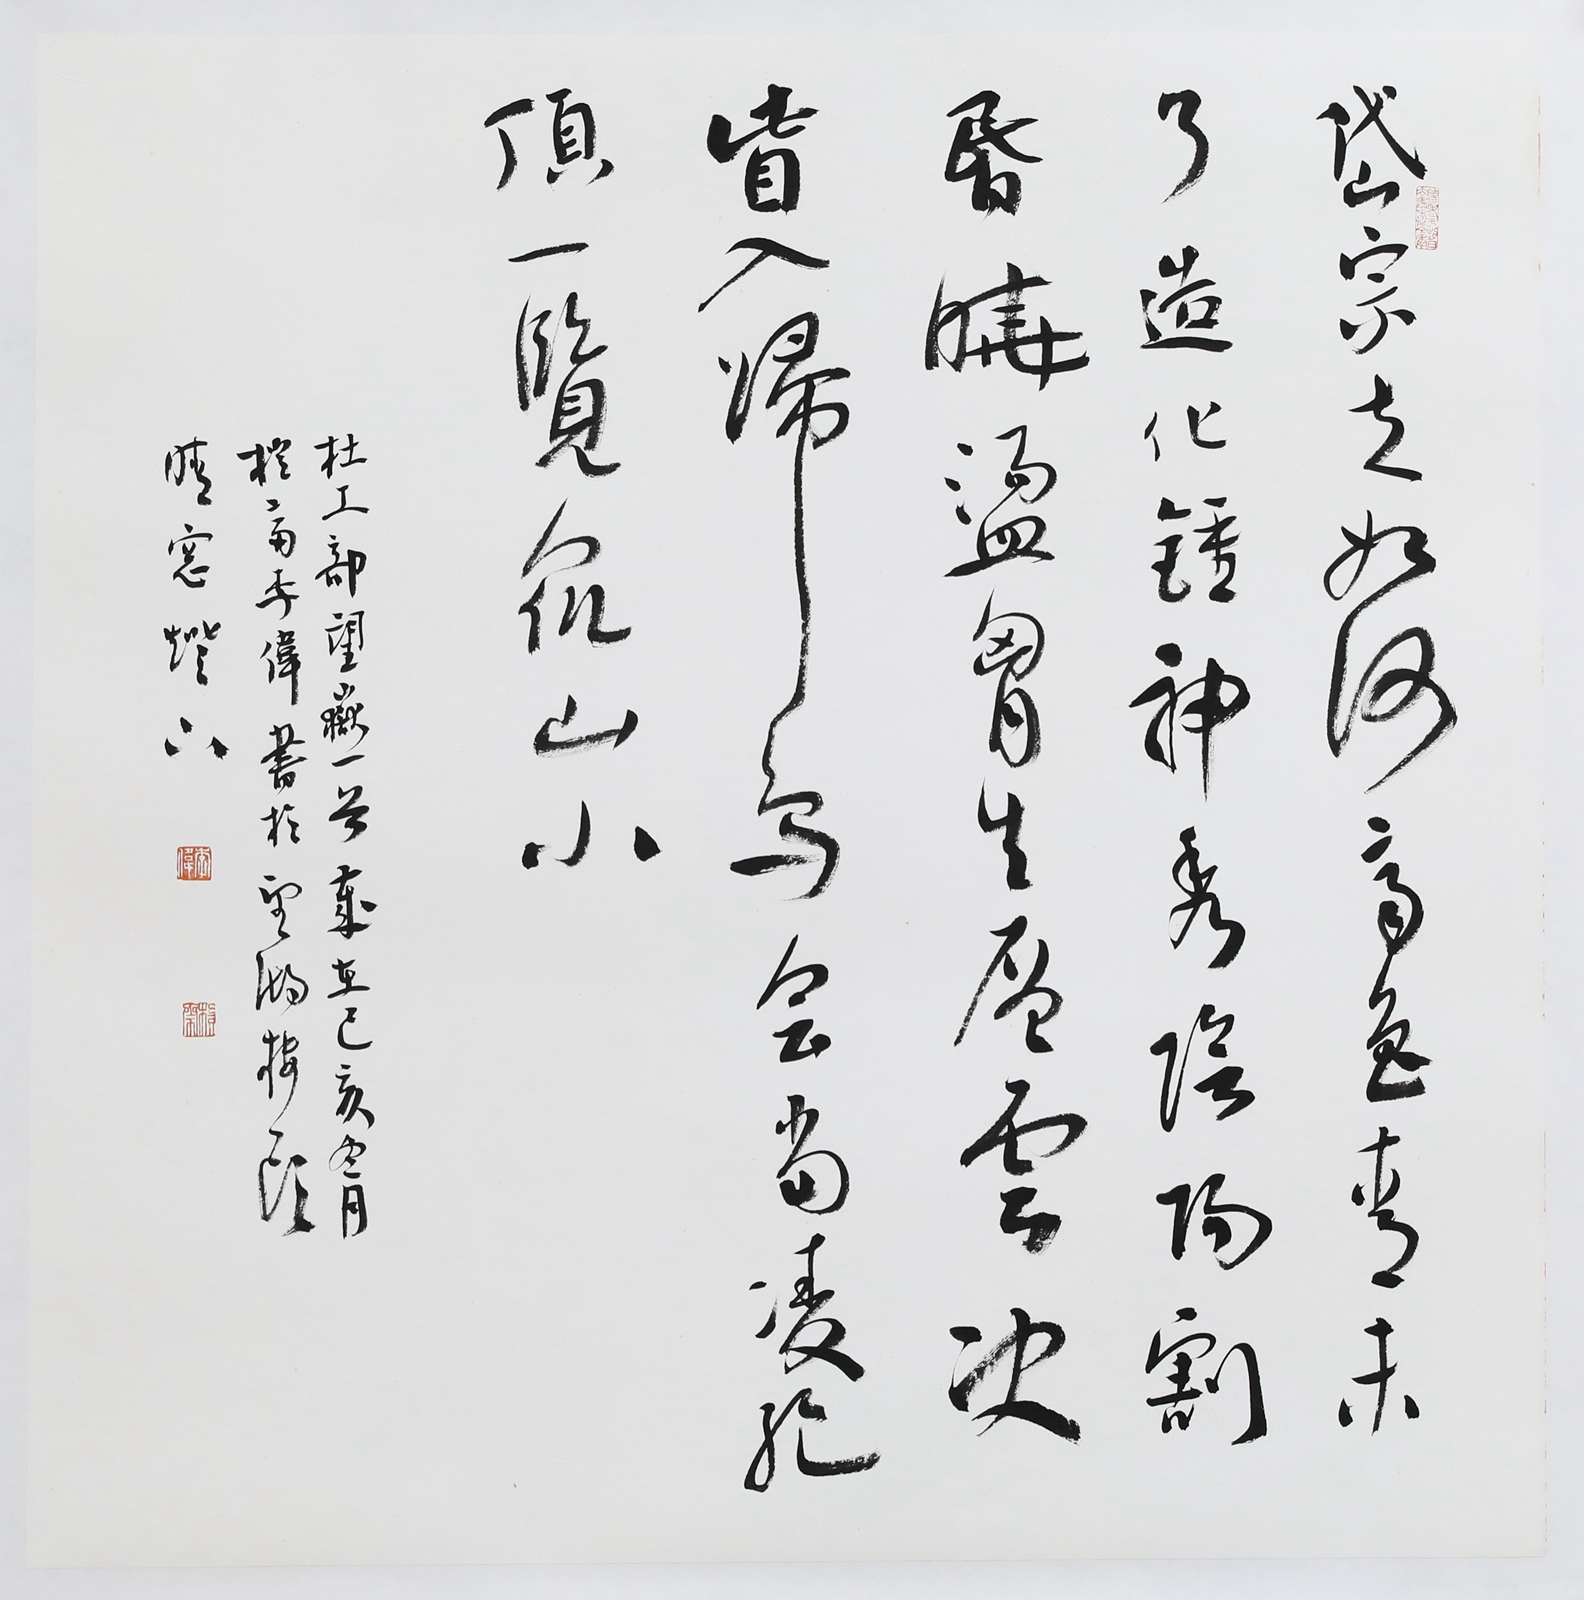 岱宗夫如何齊魯青未
了造化鍾神秀陰陽割
昏曉盪胷生層雲決
眥入歸鳥會當凌絕
頂一覽眾山小
杜工部望嶽一首歲在己亥冬月
齋李偉書於望湖樓頭
晴窓燈下
李偉